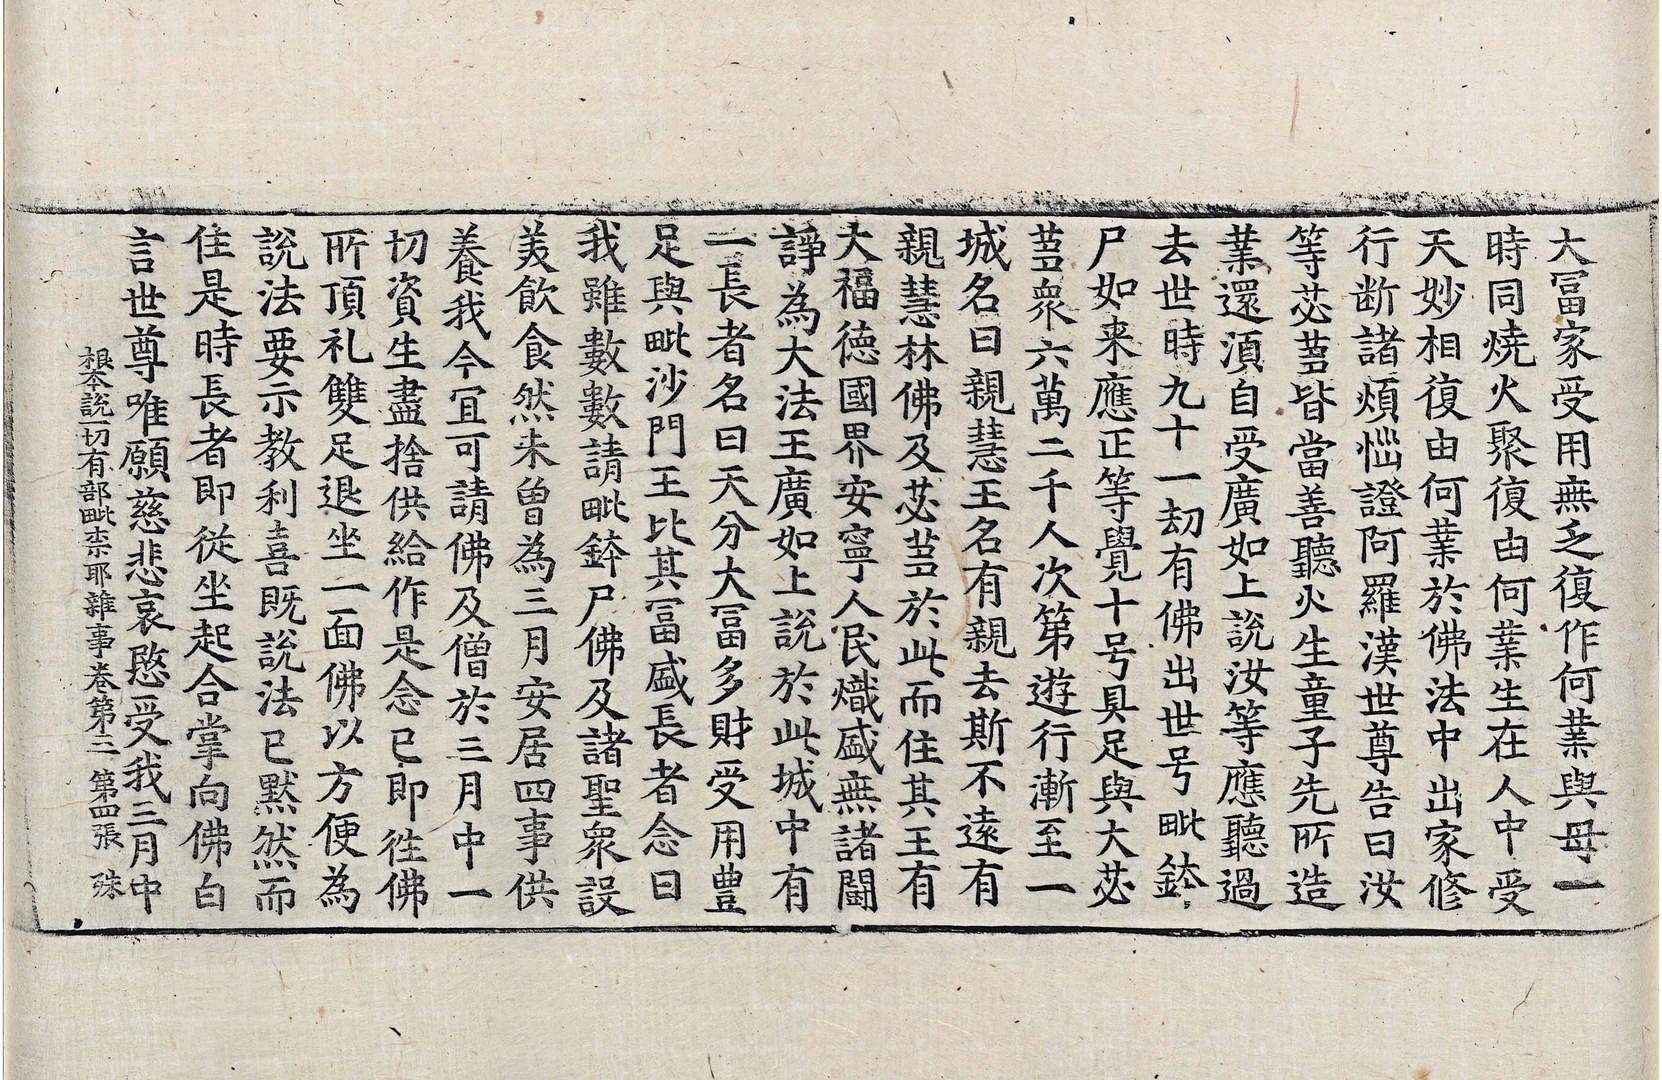 大冨家受用無乏復作何業與母一
時同燒火聚復由何業生在人中受
天妙相復由何業於佛法中出家修
行断諸煩惱證阿羅漢世尊告曰汝
等苾蒭皆當善聽火生童子先所造
業還湏自受廣如上說汝等應聽過
去世時九十一劫有佛出世号毗鉢
尸如来應正等覺十号具足與大苾
蒭衆六萬二千人次第遊行漸至一
城名曰親慧王名有親去斯不遠有
親慧林佛及苾蒭於此而住其王有
大福德國界安寧人民熾盛無諸鬪
諍為大法王廣如上說於此城中有
一長者名曰天分大冨多財受用豊
足與毗沙門王比其冨盛長者念曰
我雖數數請毗鉢尸佛及諸聖衆設
美飲食然未曾為三月安居四事供
養我今宜可請佛及僧於三月中一
切資生盡捨供給作是念已即往佛
所頂礼雙足退坐一面佛以方便為
說法要示教利喜既說法已默然而
住是時長者即從坐起合掌向佛白
言世尊唯願慈悲哀愍受我三月中
根本說一切有部毗柰耶雜事卷第三 第四張 殊